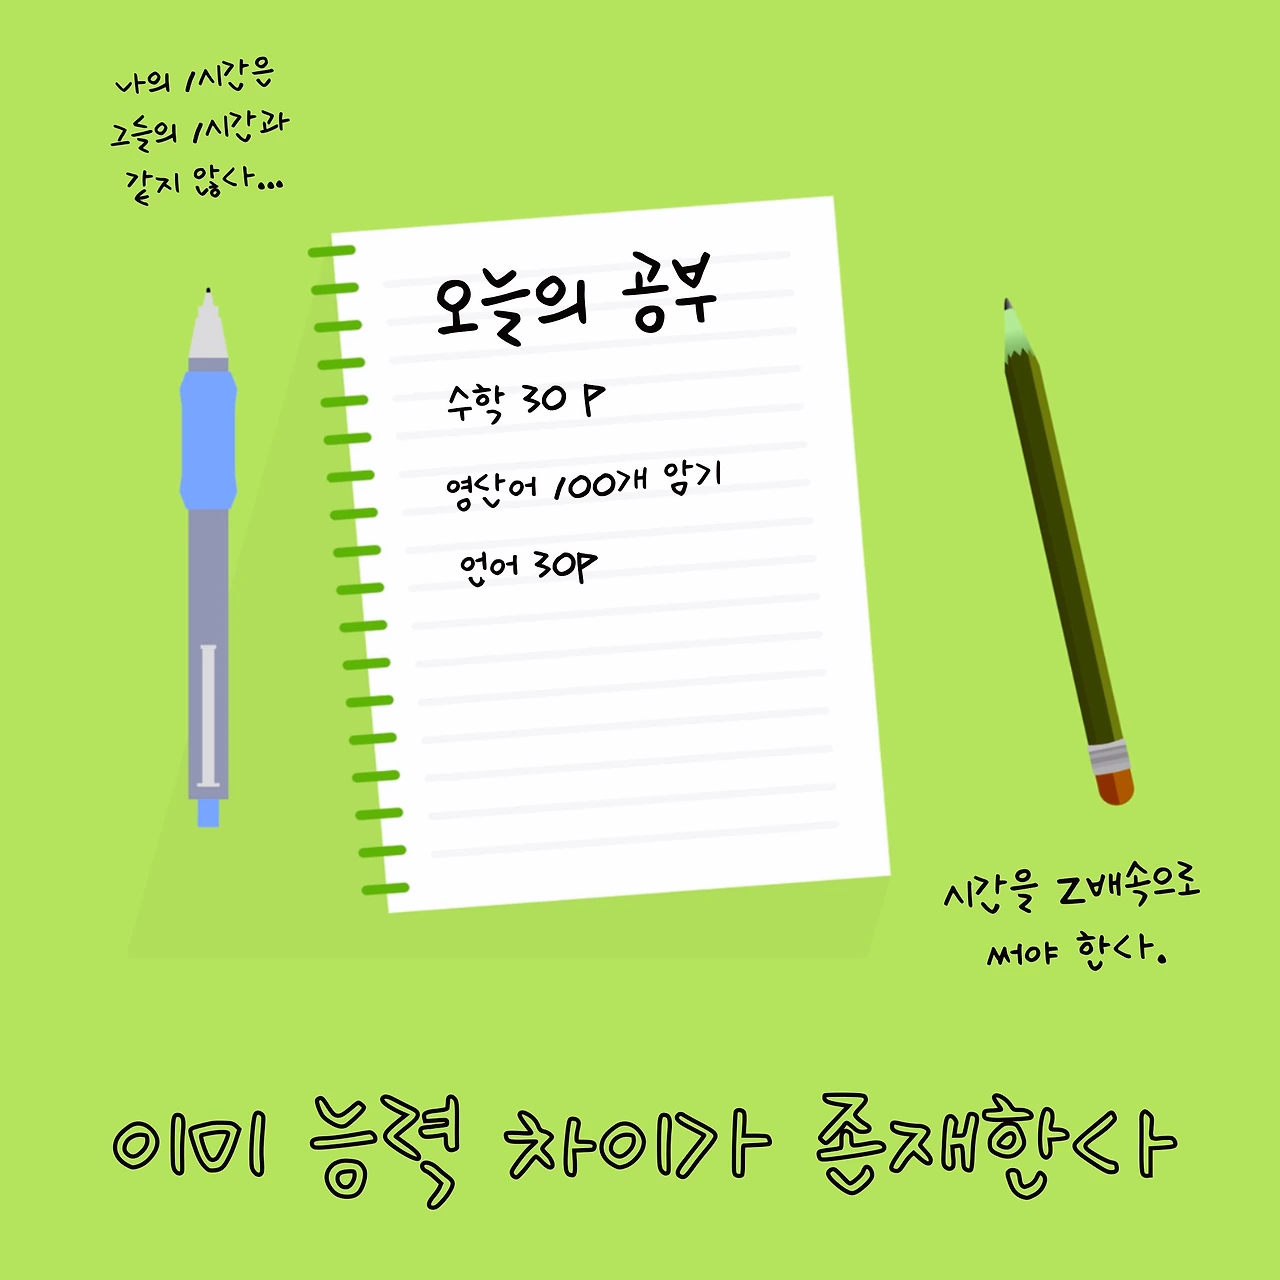 나의 1시간은
그들의 1시간과
같지 않다...
오늘의 공부
수학 30 P
영단어 100개 암기
언어 30P
시간을 2배속으로
써야 한다.
이미 능력 차이가 존재한다